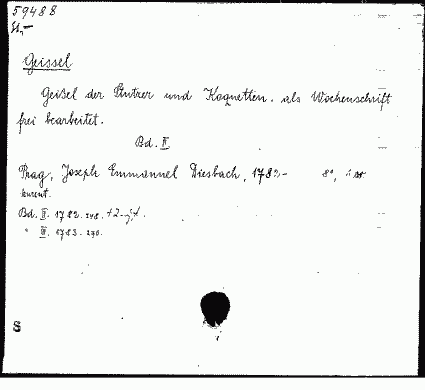 59488
Geissel
Geißel der Stutzer und Koquetten. als Wochenschrift
frei bearbeitet.
Bd. II
Prag, Joseph Emmanuel Diesbach, 1782- 8°,
kurent.
Bd. II. 1782. 248.
" III. 1783. 270.
S